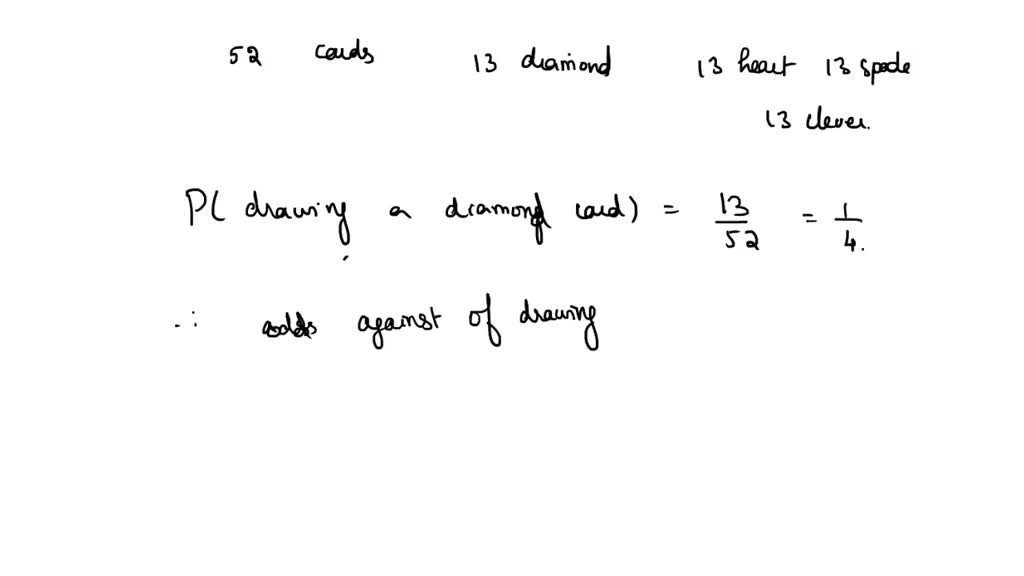 52 cards 13 diamond 13 heart 13 spade
13 clever.
P( drawing a diamond card) = 13/52 = 1/4.
∴ odds against of drawing